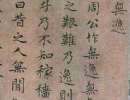 無逸
周公作無逸
之艱難乃逸則
乃不知稼穡
曰昔之人無聞